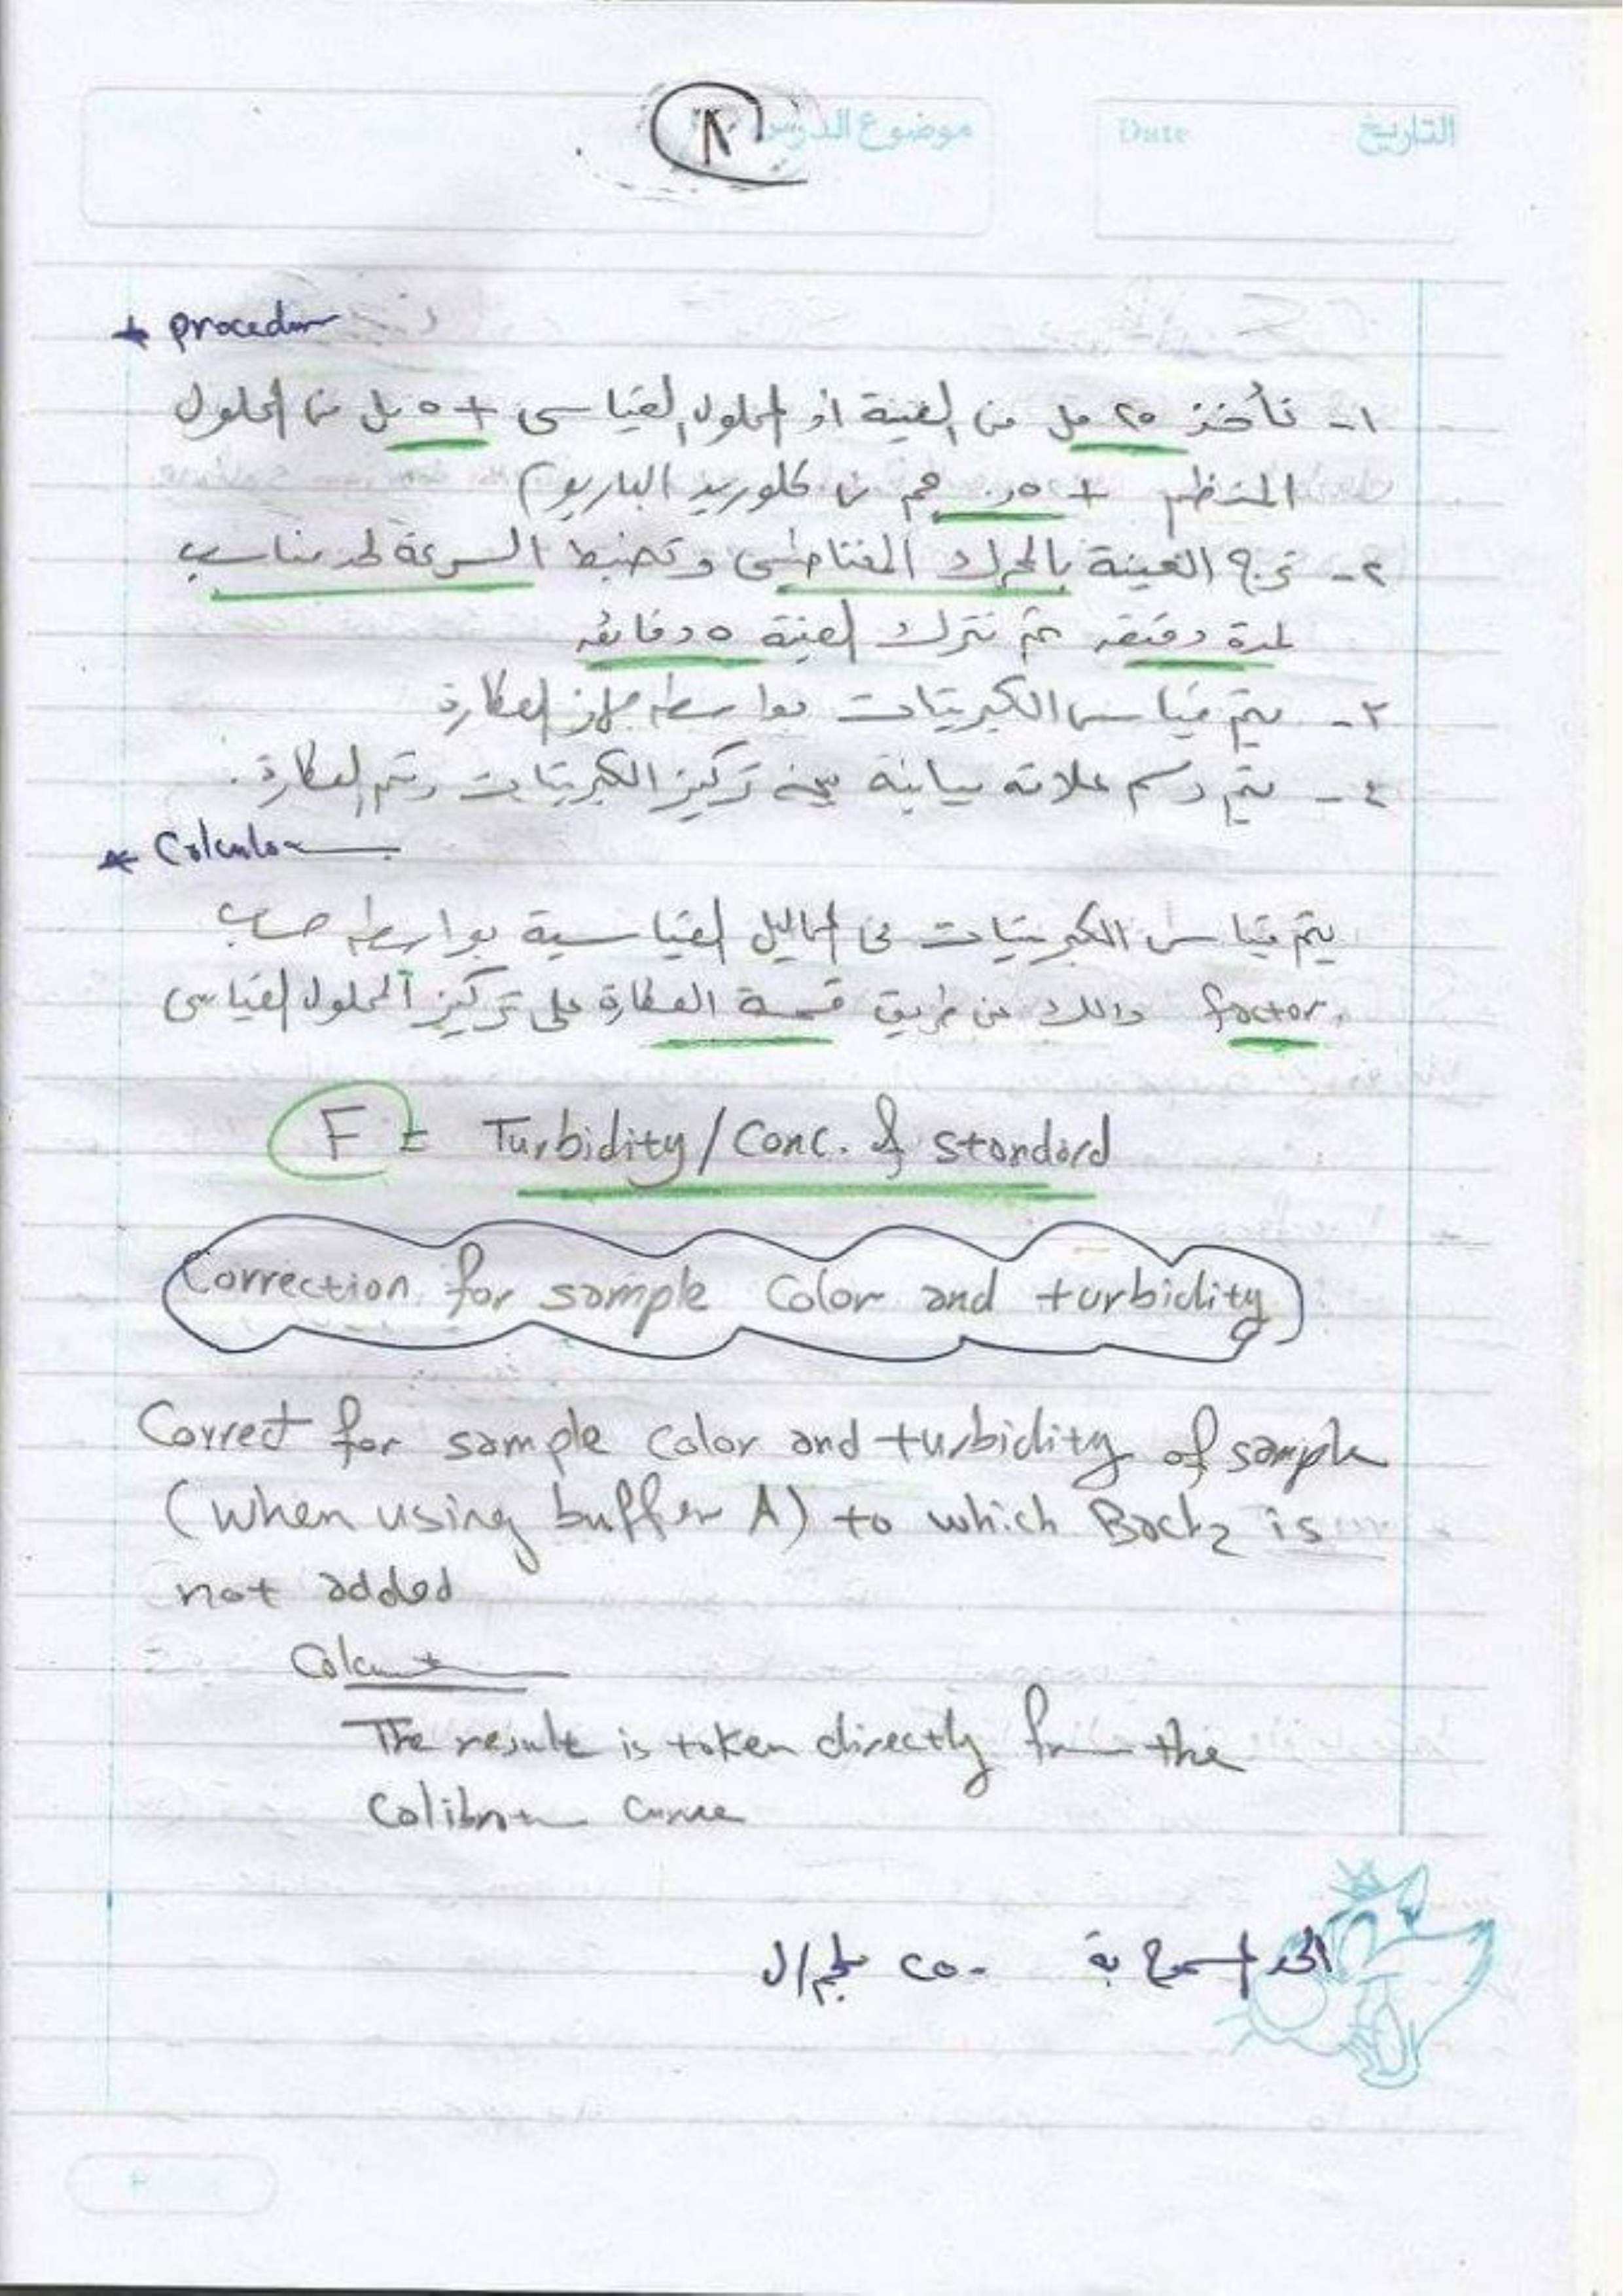 موضوع الدرس
التاريخ Date
* procedur
١- نأخذ ٢٥ مل من العينة أو المحلول القياسى + ٥ مل من المحلول
المنظم + ٥ر. جم من كلوريد الباريوم
٢- ترج العينة بالمحرك المغناطيسى وتضبط السرعة لحد مناسب
لمدة دقيقه ثم نترك العينة ٥ دقائق
٣- يتم قياس الكبريتات بواسطه جهاز العكارة
٤- يتم رسم علاقه بيانية بين تركيز الكبريتات وقيم العكارة.
* Calculation
يتم قياس الكبريتات فى المحاليل القياسية بواسطه حساب
factor وذلك عن طريق قسمة العكارة على تركيز المحلول القياسى
F = Turbidity / Conc. of standard
Correction for sample Color and turbidity
Correct for sample Color and turbidity of sample
(when using buffer A) to which Bacl2 is
not added
Calculation
The result is taken directly from the
Calibration curve
الحد المسموح به ٢٥٠ ملجم/ل